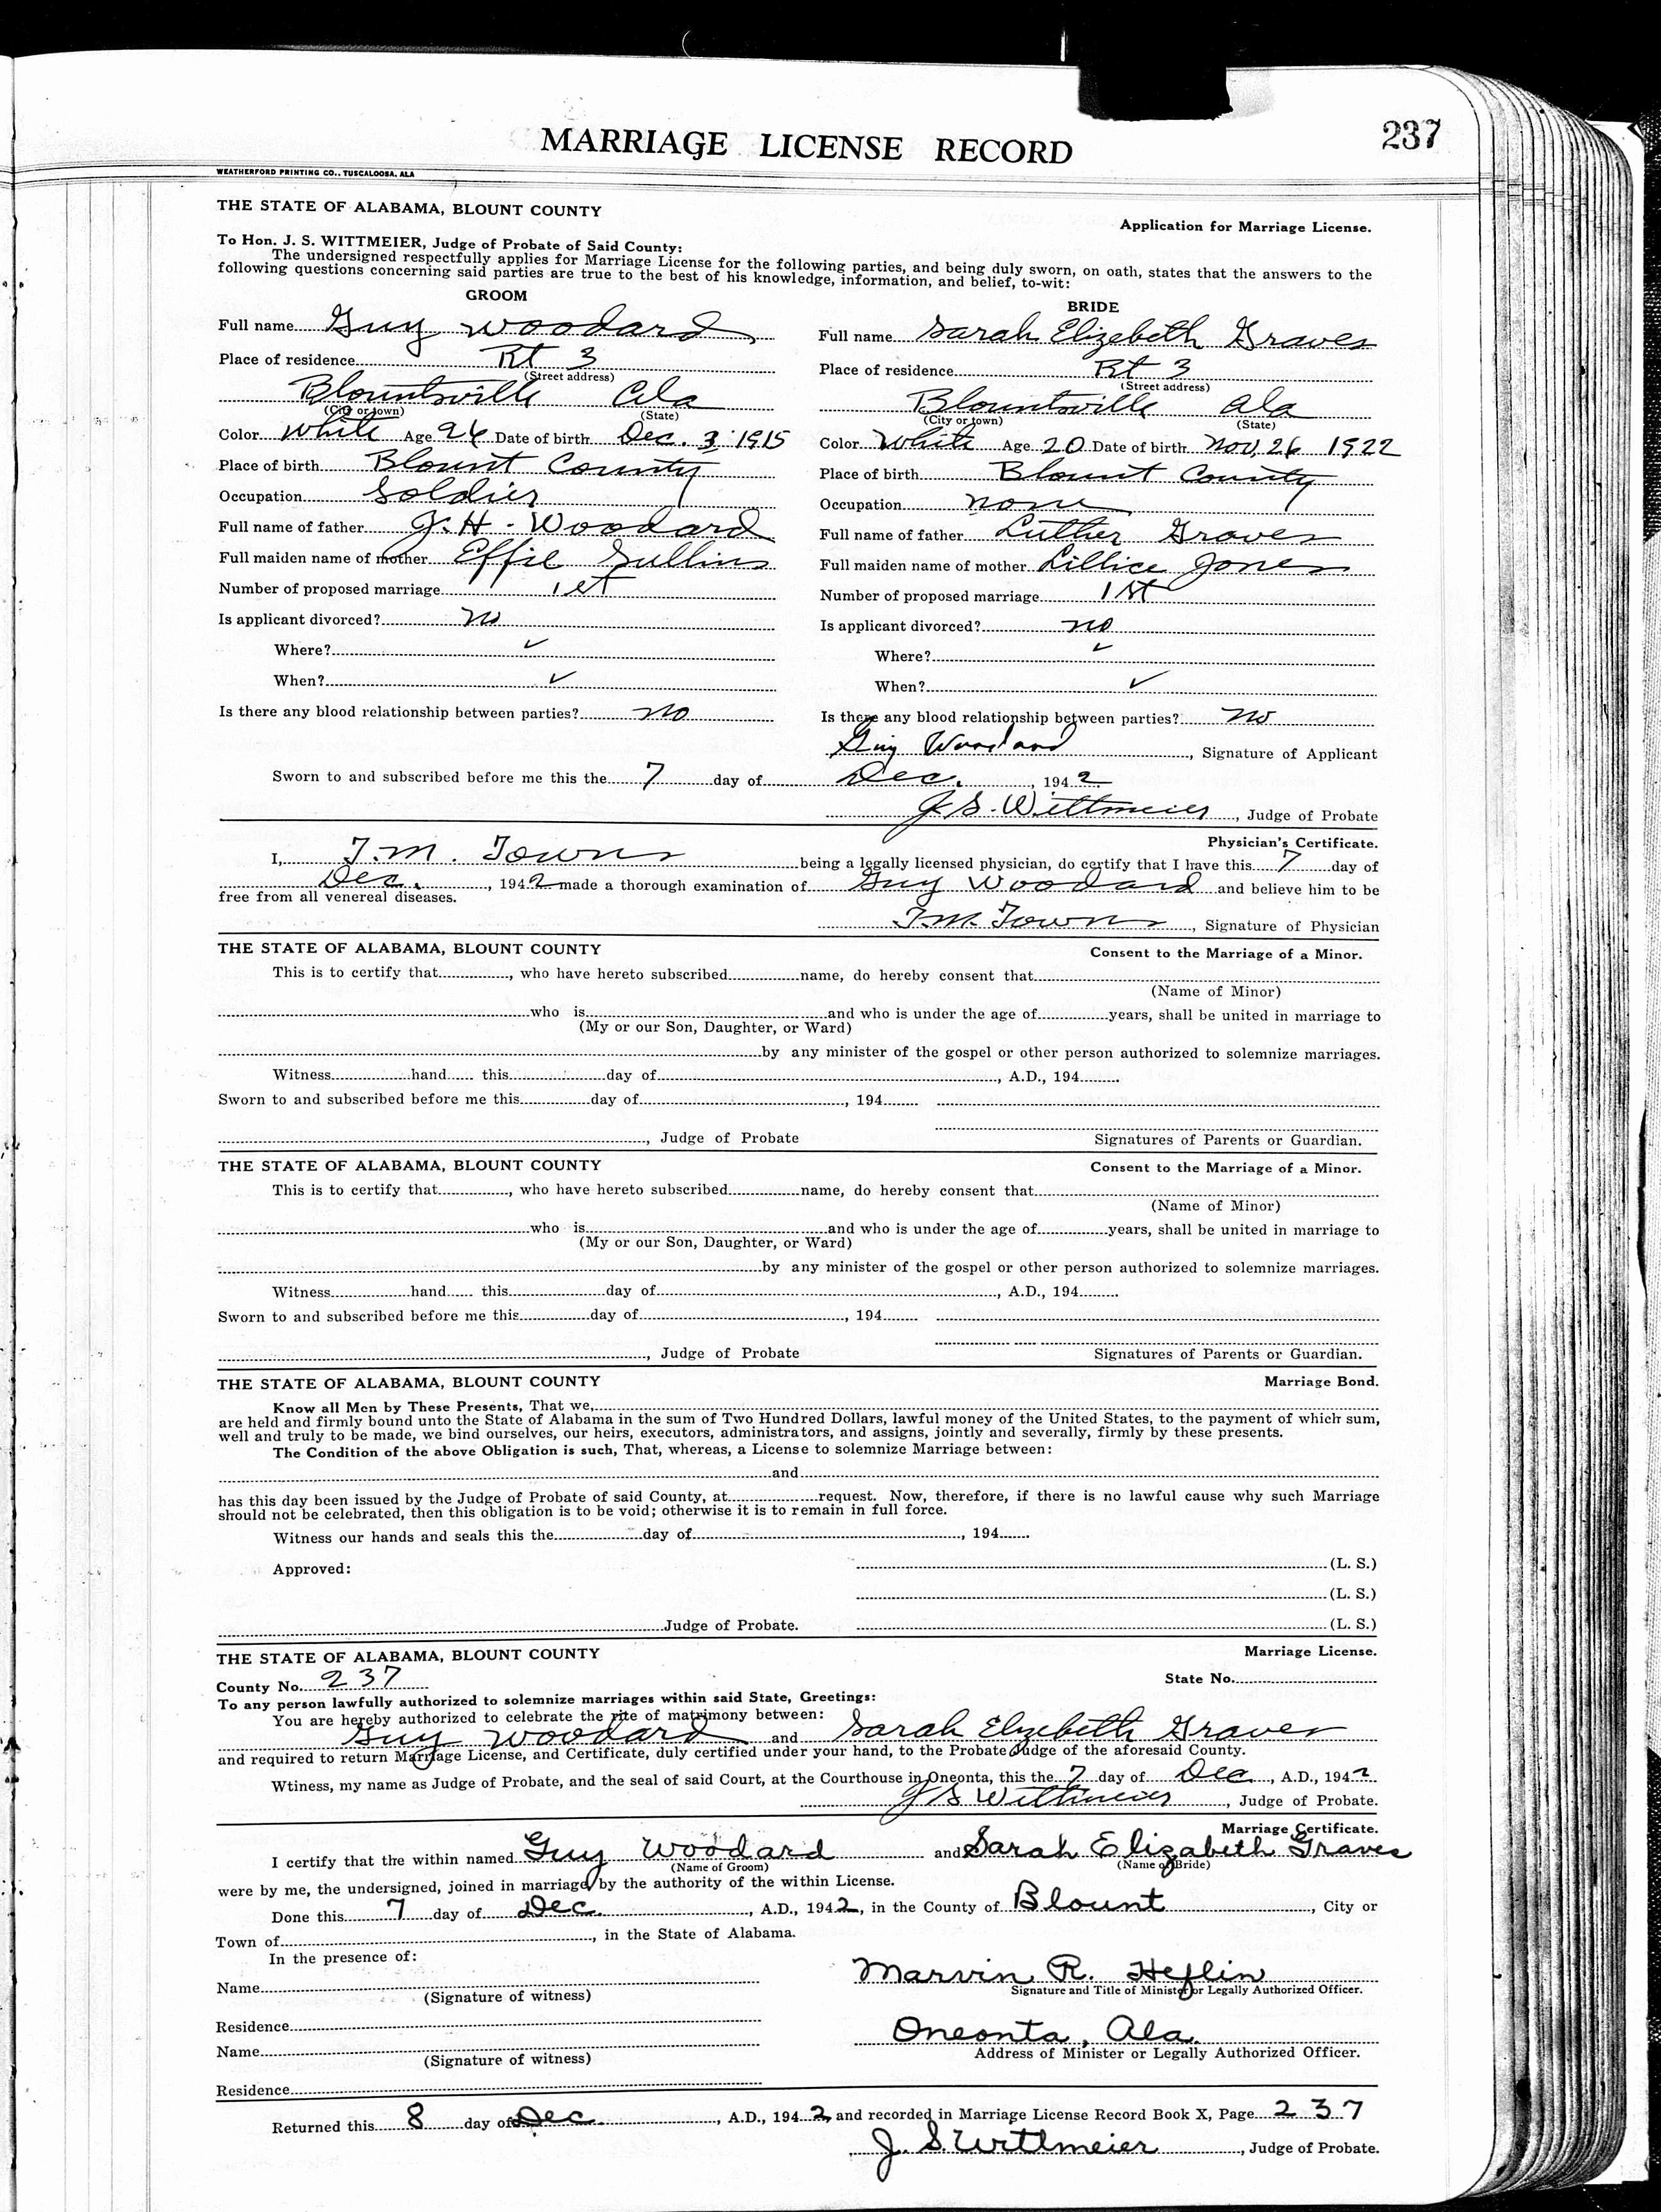 MARRIAGE LICENSE RECORD 237
WEATHERFORD PRINTING CO., TUSCALOOSA, ALA
THE STATE OF ALABAMA, BLOUNT COUNTY
Application for Marriage License.
To Hon. J. S. WITTMEIER, Judge of Probate of Said County:
The undersigned respectfully applies for Marriage License for the following parties, and being duly sworn, on oath, states that the answers to the
following questions concerning said parties are true to the best of his knowledge, information, and belief, to-wit:
GROOM
Full name Guy Woodard
Place of residence Rt 3
(Street address)
Blountsville Ala
(City or town) (State)
Color White Age 26 Date of birth Dec. 3 1915
Place of birth Blount County
Occupation Soldier
Full name of father J. H. Woodard
Full maiden name of mother Effie Sullins
Number of proposed marriage 1st
Is applicant divorced? no
Where? ✓
When? ✓
Is there any blood relationship between parties? no
BRIDE
Full name Sarah Elizebeth Graves
Place of residence Rt 3
(Street address)
Blountsville Ala
(City or town) (State)
Color White Age 20 Date of birth Nov. 26 1922
Place of birth Blount County
Occupation none
Full name of father Luther Graves
Full maiden name of mother Lillice Jones
Number of proposed marriage 1st
Is applicant divorced? no
Where? ✓
When? ✓
Is there any blood relationship between parties? no
Guy Woodard, Signature of Applicant
Sworn to and subscribed before me this the 7 day of Dec., 1942
J. S. Wittmeier, Judge of Probate
Physician's Certificate.
I, T. M. Towns being a legally licensed physician, do certify that I have this 7 day of
Dec., 1942 made a thorough examination of Guy Woodard and believe him to be
free from all venereal diseases.
T. M. Towns, Signature of Physician
THE STATE OF ALABAMA, BLOUNT COUNTY Consent to the Marriage of a Minor.
This is to certify that, who have hereto subscribed name, do hereby consent that
(Name of Minor)
who is and who is under the age of years, shall be united in marriage to
(My or our Son, Daughter, or Ward)
by any minister of the gospel or other person authorized to solemnize marriages.
Witness hand this day of, A.D., 194
Sworn to and subscribed before me this day of, 194
, Judge of Probate Signatures of Parents or Guardian.
THE STATE OF ALABAMA, BLOUNT COUNTY Consent to the Marriage of a Minor.
This is to certify that, who have hereto subscribed name, do hereby consent that
(Name of Minor)
who is and who is under the age of years, shall be united in marriage to
(My or our Son, Daughter, or Ward)
by any minister of the gospel or other person authorized to solemnize marriages.
Witness hand this day of, A.D., 194
Sworn to and subscribed before me this day of, 194
, Judge of Probate Signatures of Parents or Guardian.
THE STATE OF ALABAMA, BLOUNT COUNTY Marriage Bond.
Know all Men by These Presents, That we,
are held and firmly bound unto the State of Alabama in the sum of Two Hundred Dollars, lawful money of the United States, to the payment of which sum,
well and truly to be made, we bind ourselves, our heirs, executors, administrators, and assigns, jointly and severally, firmly by these presents.
The Condition of the above Obligation is such, That, whereas, a License to solemnize Marriage between:
and
has this day been issued by the Judge of Probate of said County, at request. Now, therefore, if there is no lawful cause why such Marriage
should not be celebrated, then this obligation is to be void; otherwise it is to remain in full force.
Witness our hands and seals this the day of, 194
Approved: (L. S.)
(L. S.)
Judge of Probate. (L. S.)
THE STATE OF ALABAMA, BLOUNT COUNTY Marriage License.
County No. 237 State No.
To any person lawfully authorized to solemnize marriages within said State, Greetings:
You are hereby authorized to celebrate the rite of matrimony between:
Guy Woodard and Sarah Elizebeth Graves
and required to return Marriage License, and Certificate, duly certified under your hand, to the Probate Judge of the aforesaid County.
Wtiness, my name as Judge of Probate, and the seal of said Court, at the Courthouse in Oneonta, this the 7 day of Dec, A.D., 1942
J S Wittmeier, Judge of Probate.
Marriage Certificate.
I certify that the within named Guy Woodard and Sarah Elizabeth Graves
(Name of Groom) (Name of Bride)
were by me, the undersigned, joined in marriage by the authority of the within License.
Done this 7 day of Dec., A.D., 1942, in the County of Blount, City or
Town of, in the State of Alabama.
In the presence of:
Marvin R. Heflin
Name Signature and Title of Minister or Legally Authorized Officer.
(Signature of witness)
Residence Oneonta, Ala.
Name Address of Minister or Legally Authorized Officer.
(Signature of witness)
Residence
Returned this 8 day of Dec., A.D., 1942 and recorded in Marriage License Record Book X, Page 237
J. S. Wittmeier, Judge of Probate.